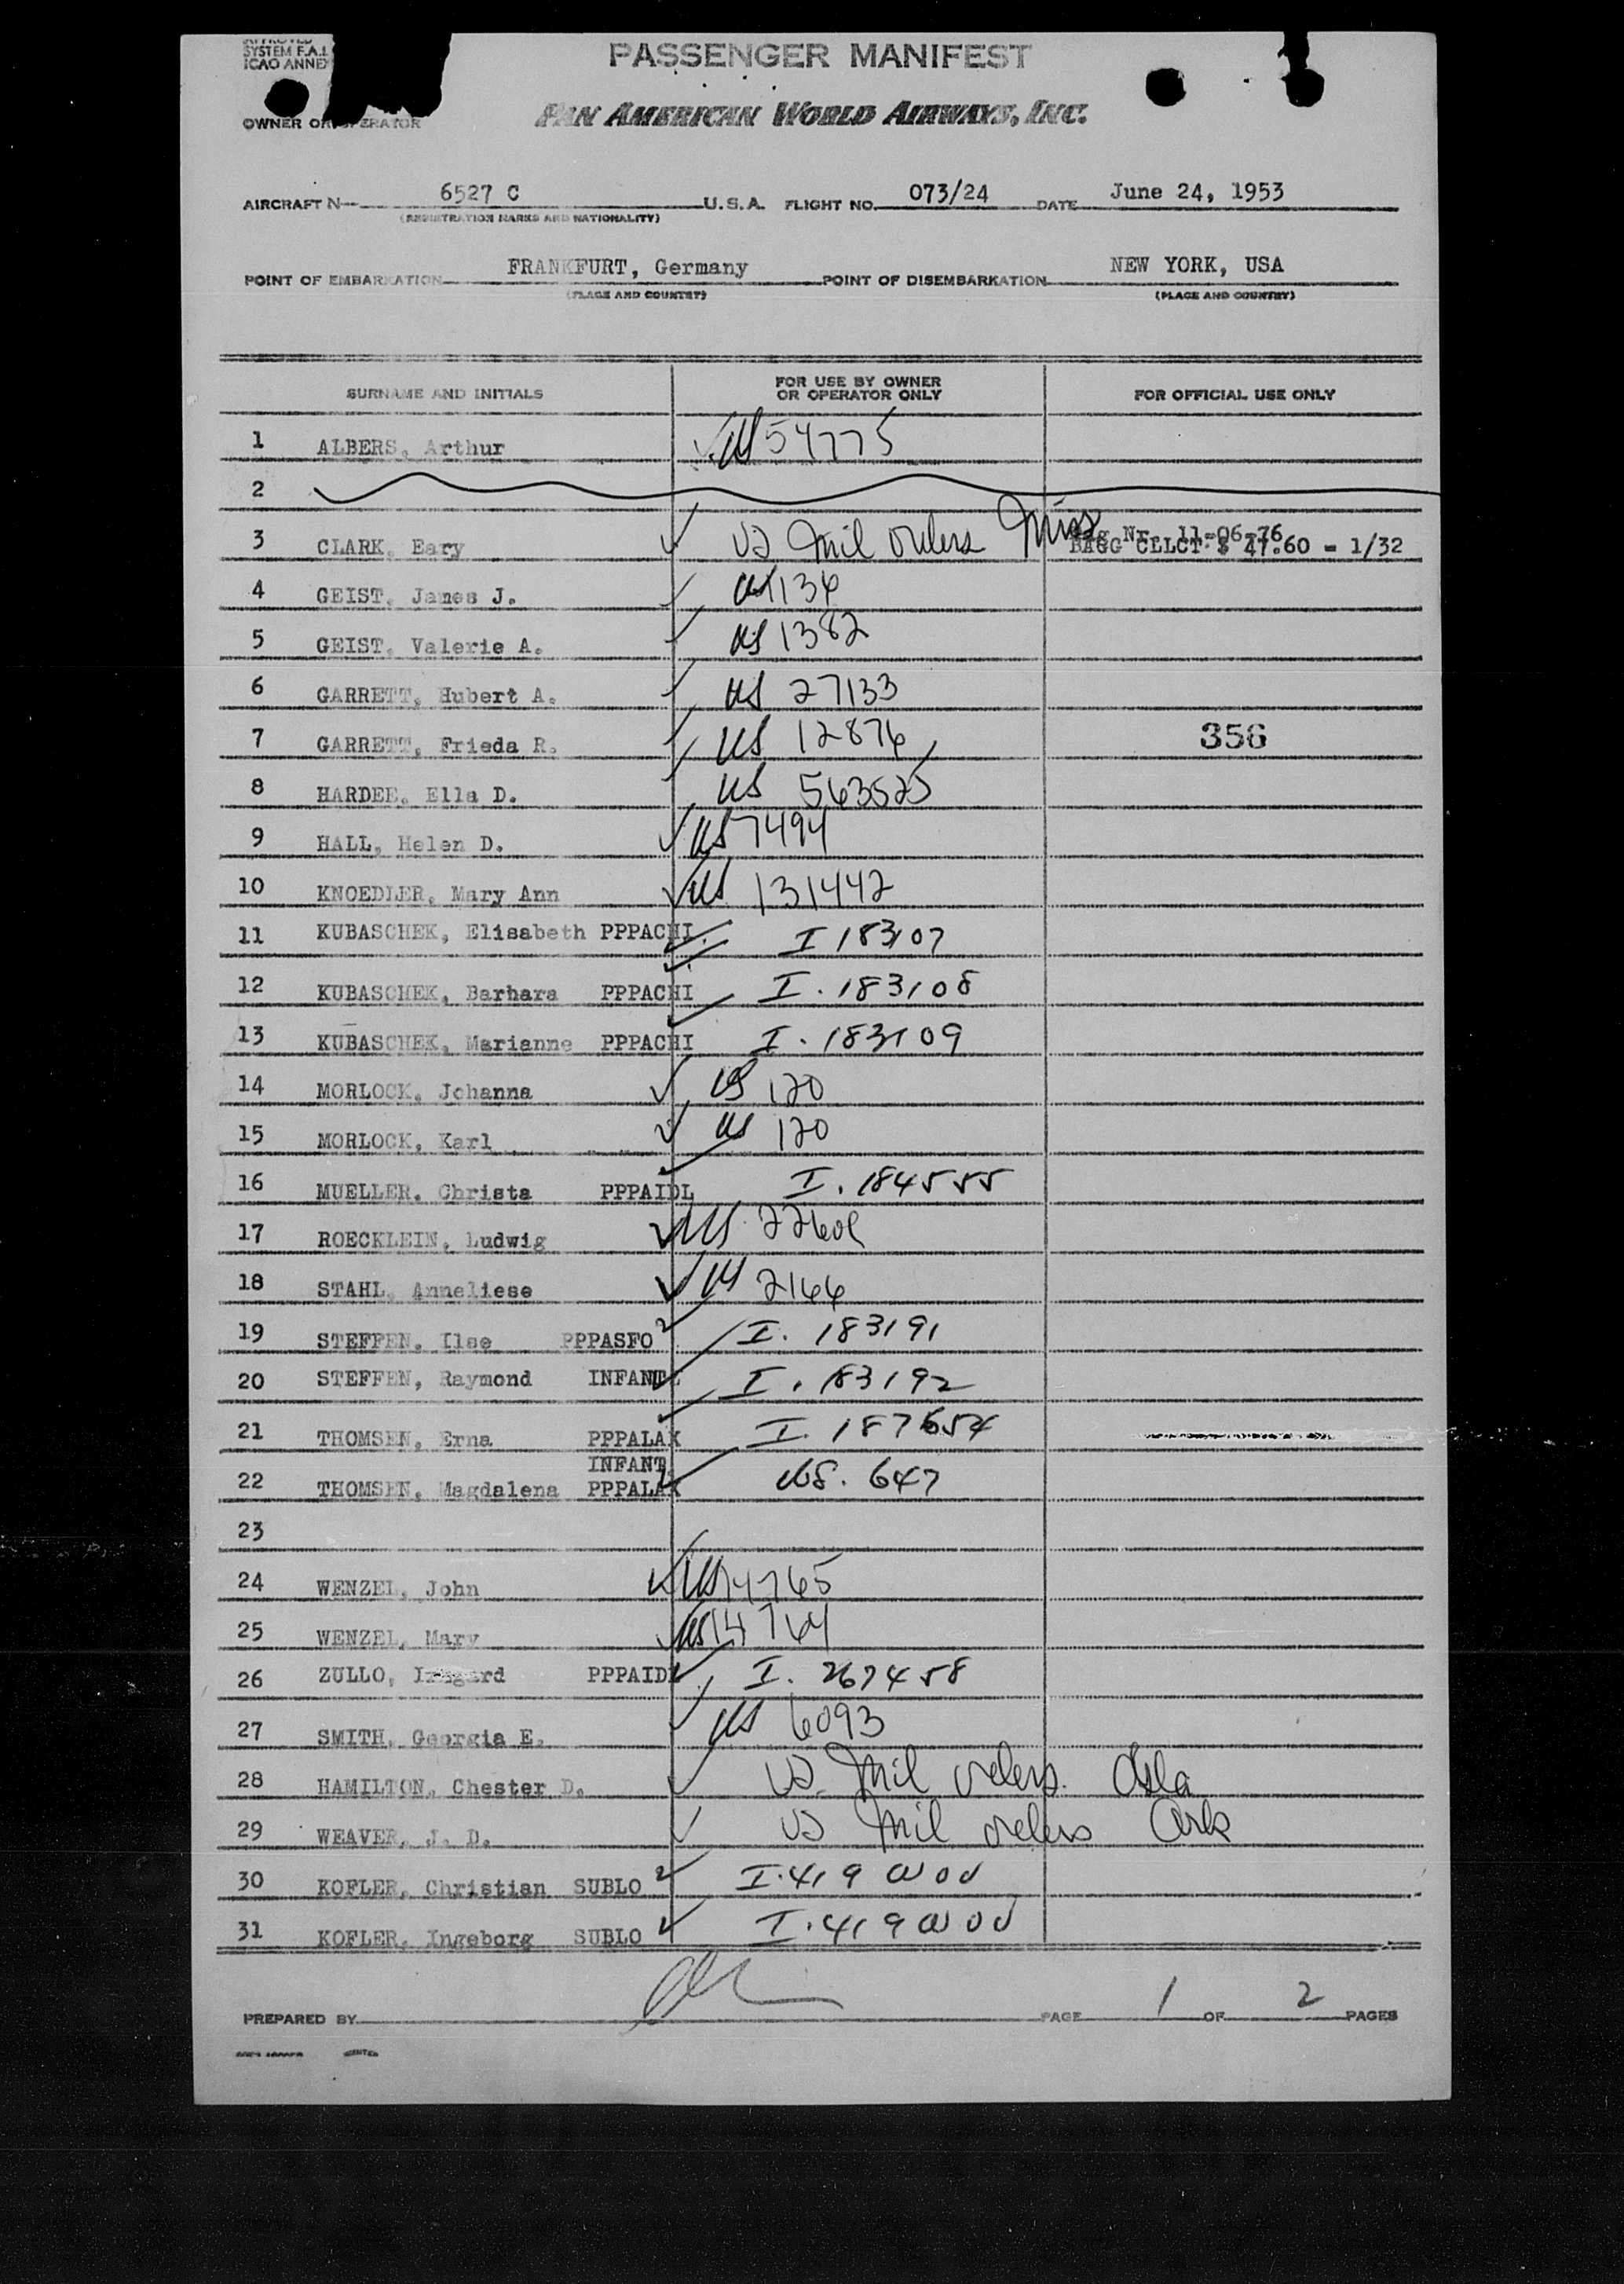 SYSTEM F.A.L
ICAO ANNEX
PASSENGER MANIFEST
OWNER OR OPERATOR
PAN AMERICAN WORLD AIRWAYS, INC.
AIRCRAFT N 6527 C U.S.A. FLIGHT NO. 073/24 DATE June 24, 1953
(REGISTRATION MARKS AND NATIONALITY)
POINT OF EMBARKATION FRANKFURT, Germany POINT OF DISEMBARKATION NEW YORK, USA
(PLACE AND COUNTRY) (PLACE AND COUNTRY)
SURNAME AND INITIALS FOR USE BY OWNER OR OPERATOR ONLY FOR OFFICIAL USE ONLY
1 ALBERS, Arthur US 54775
2
3 CLARK, Eary US Mil orders Miss Bag Nr. 11-06-76
BAGG CLLCT $ 47.60 - 1/32
4 GEIST, James J. US 1134
5 GEIST, Valerie A. US 1382
6 GARRETT, Hubert A. US 27133
7 GARRETT, Frieda R. US 12876 356
8 HARDEE, Ella D. US 563525
9 HALL, Helen D. US 7494
10 KNOEDLER, Mary Ann US 131442
11 KUBASCHEK, Elisabeth PPPACHI I 183107
12 KUBASCHEK, Barbara PPPACHI I. 183108
13 KUBASCHEK, Marianne PPPACHI I. 183109
14 MORLOCK, Johanna US 120
15 MORLOCK, Karl US 120
16 MUELLER, Christa PPPAIDL I. 184555
17 ROECKLEIN, Ludwig US
18 STAHL, Anneliese US 2166
19 STEFFEN, Ilse PPPASFO I. 183191
20 STEFFEN, Raymond INFANT I. 183192
21 THOMSEN, Erna PPPALAX I. 187654
INFANT
22 THOMSEN, Magdalena PPPALAX US. 647
23
24 WENZEL, John US 14765
25 WENZEL, Mary US 14764
26 ZULLO, Irmgard PPPAIDL I. 267458
27 SMITH, Georgia E. US 6093
28 HAMILTON, Chester D. US Mil orders
29 WEAVER, J. D. US Mil orders Ark
30 KOFLER, Christian SUBLO I. 419
31 KOFLER, Ingeborg SUBLO I. 419
PREPARED BY PAGE 1 OF 2 PAGES